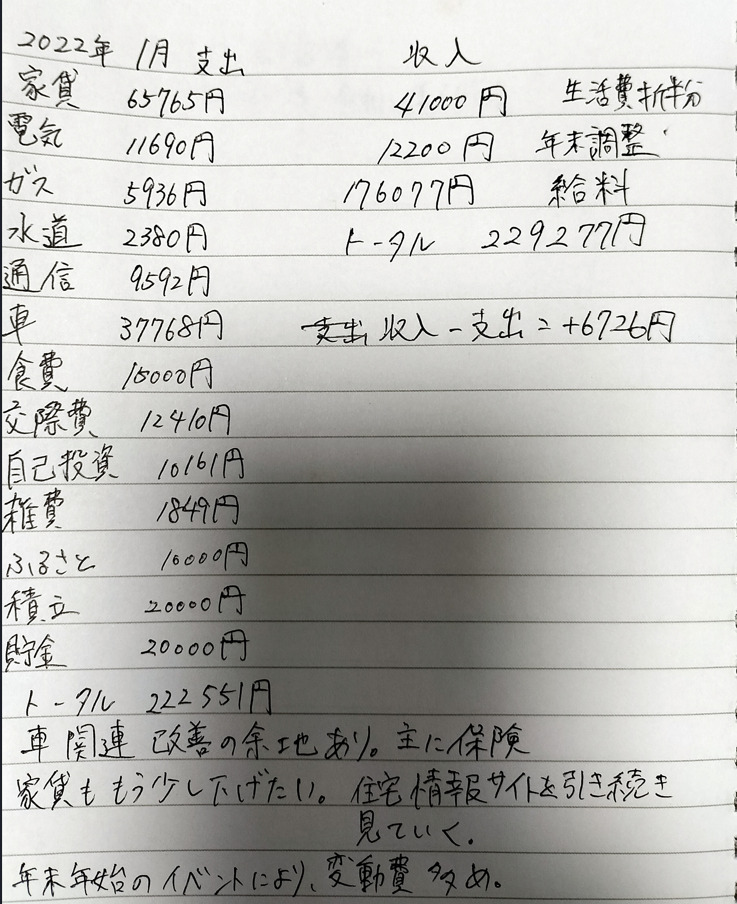 2022年 1月 支出 収入
家賃 65765円 41000円 生活費折半分
電気 11690円 12200円 年末調整
ガス 5936円 176077円 給料
水道 2380円 トータル 229277円
通信 9592円
車 37768円 支出 収入-支出=+6726円
食費 15000円
交際費 12410円
自己投資 10161円
雑費 1849円
ふるさと 10000円
積立 20000円
貯金 20000円
トータル 222551円
車関連 改善の余地あり。主に保険
家賃ももう少し下げたい。住宅情報サイトを引き続き
見ていく.
年末年始のイベントにより、変動費多め。